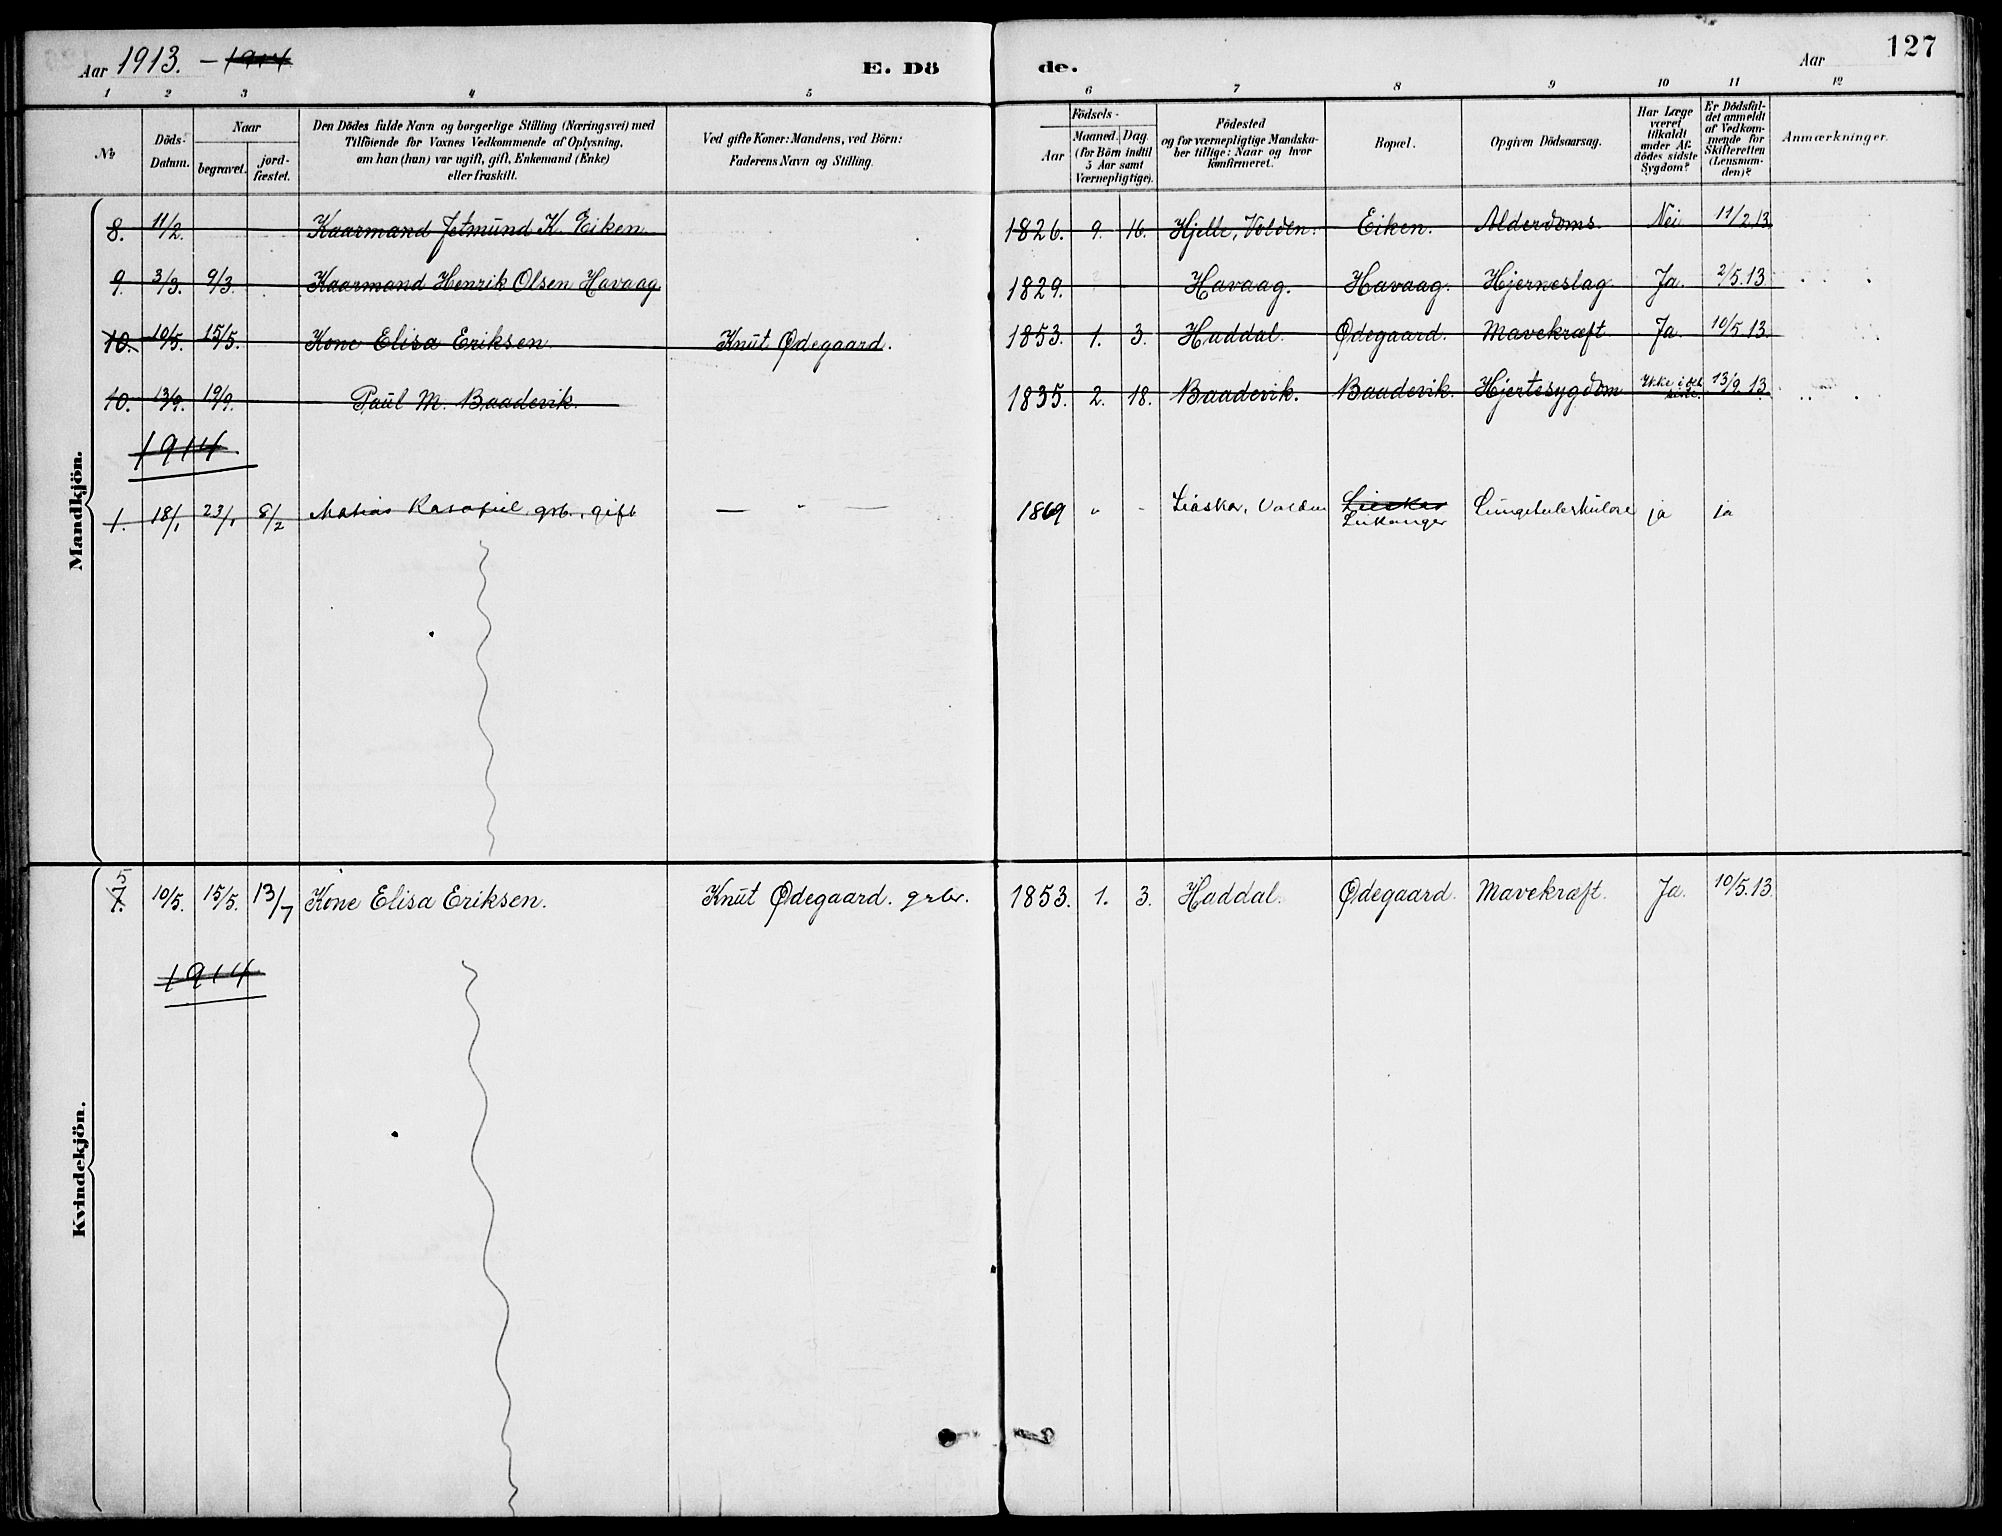 Aar 1913. – 1914
E. Döde.
Aar
127
1 2 3 4 5 6 7 8 9 10 11 12
No
Döds-Datum.
Naar
begravet.
jord-fæstet.
Den Dödes fulde Navn og borgerlige Stilling (Næringsvei) med
Tilföiende for Voxnes Vedkommende af Oplysning,
om han (hun) var ugift, gift, Enkemand (Enke)
eller fraskilt.
Ved gifte Koner: Mandens, ved Börn:
Faderens Navn og Stilling.
Födsels-
Aar
Maaned. Dag.
(for Börn indtil
5 Aar samt
Værnepligtige).
Födested
og for værnepligtige Mandska-
ber tillige: Naar og hvor
konfirmeret.
Bopæl.
Opgiven Dödsaarsag.
Har Læge
været
tilkaldt
under Af-
dödes sidste
Sygdom?
Er Dödsfal-
det anmeldt
af Vedkom-
mende for
Skifteretten
(Lensman-
den)?
Anmærkninger.
Mandkjön.
8. 11/2. Kaarmand Jetmund K. Eiken. 1826. 9. 16. Hjelle, Volden. Eiken. Alderdoms. Nei 11/2.13.
9. 3/3. 9/3. Kaarmand Henrik Olsen Havaag 1829. Havaag. Havaag. Hjerneslag. Ja. 2/5.13
10. 10/5. 15/5. Kone Elisa Eriksen. Knut Ødegaard. 1853. 1. 3. Haddal. Ødegaard. Mavekræft. Ja. 10/5.13.
10. 13/9. 19/9. Paul M. Baadevik. 1835. 2. 18. Baadevik. Baadevik. Hjertesygdom Ikke i det 13/9.13.
1914
1. 18/1 23/1 8/2 grb., gift — " — 1869 " - Liaskar, Volden Liaskar Lungetuberkulose ja ja
Leikanger
Kvindekjön.
5
7. 10/5. 15/5. 13/7 Kone Elisa Eriksen. Knut Ødegaard. grbr. 1853. 1. 3. Haddal. Ødegaard. Mavekræft. Ja. 10/5.13.
1914